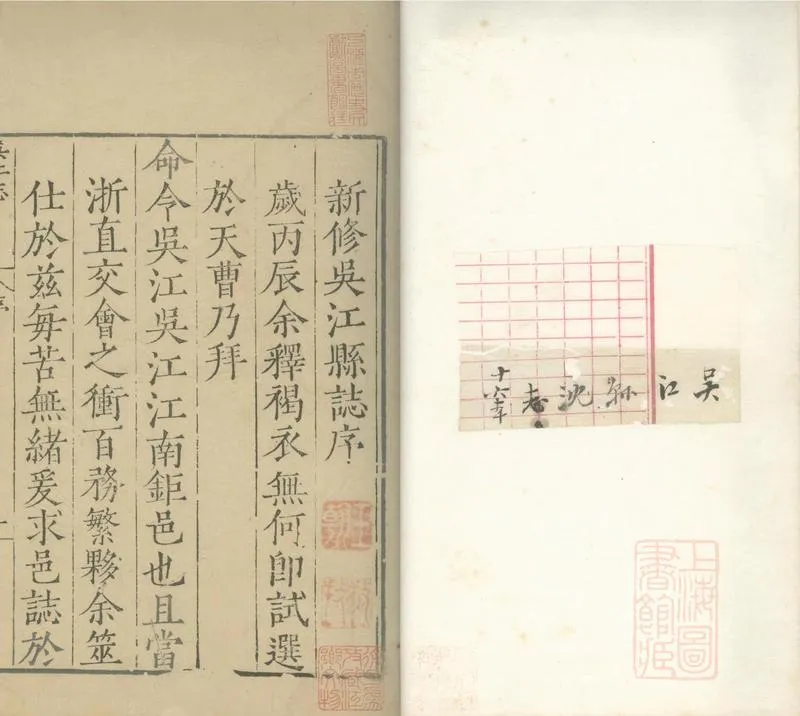 新修吳江縣誌序
歲丙辰余釋褐衣無何即試選
於天曹乃拜
命令吳江吳江江南鉅邑也且當
浙直交會之衝百務繁夥余筮
仕於茲每苦無緒爰求邑誌於
吳江縣沈志
上海圖
書館臧